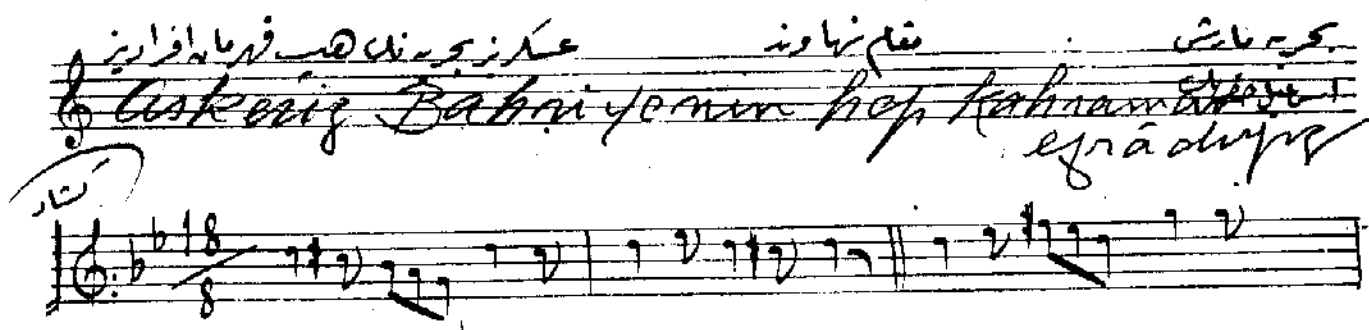 بحريه مارشى مقام نهاوند عسكرز بحريه نك هپ قهرمان افراديز
Askeriz Bahriyenin hep kahraman
efrâdıyız
18
8